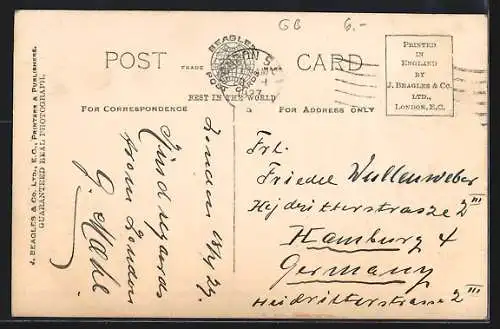 GB 6.-
POST CARD
TRADE
BEAGLES
POST CARDS
BEST IN THE WORLD
PRINTED
IN
ENGLAND
BY
J. BEAGLES & CO.
LTD.,
LONDON, E.C.
FOR CORRESPONDENCE
FOR ADDRESS ONLY
J. BEAGLES & CO. LTD., E.C., PRINTERS & PUBLISHERS.
GUARANTEED REAL PHOTOGRAPH.
London
Kind regards
from London
Frl.
Friedel Wullenweber
Hejdritterstrasze 2 III
Hamburg 4
Germany
Heidritterstrasse 2 III